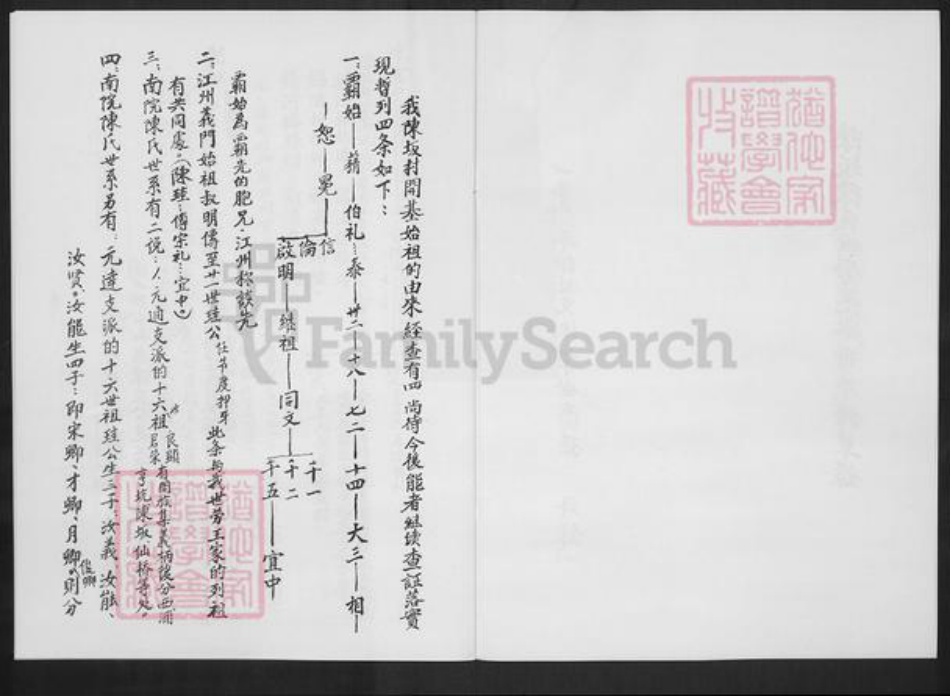 我陳坂村開基始祖的由來經查有四尚待今後能者继续查証落實
現暫列四条如下：
一、霸始—藓—伯礼…泰—卅二—十八—七二—十四—大三—相—
—恕—冕—
信
倫
啟明—继祖—同文—
千一
千二
千五—宜中
霸始為霸先的胞兄·江州称談先
二、江州義門始祖叔明傳至廿一世珪公任节度押牙此条与我世劳王家的列祖
有共同處：（陳珪…傅宗礼…宜中。）
三、南院陳氏世系有二说：1、元通支派的十六祖良顯君荣有同族集義坊後分西浦
亨坑陳坂仙桥等处。
四、南院陳氏世系另有：元達支派的十六世祖珪公生三子：汝義、汝能、
汝贤。汝能生四子：即宋卿、才卿、月卿、俊卿則分
猶他家
譜學會
收藏
猶他家
譜學會
收藏
FamilySearch